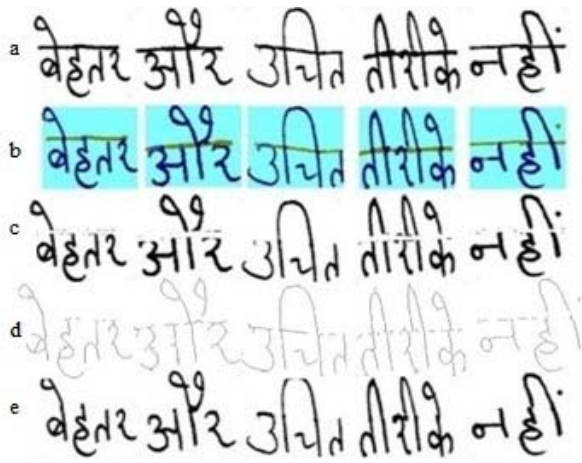 a बेहतर और उचित तीरीके नहीं
b बेहतर और उचित तीरीके नहीं
c बेहतर और उचित तीरीके नहीं
d बेहतर और उचित तीरीके नहीं
e बेहतर और उचित तीरीके नहीं